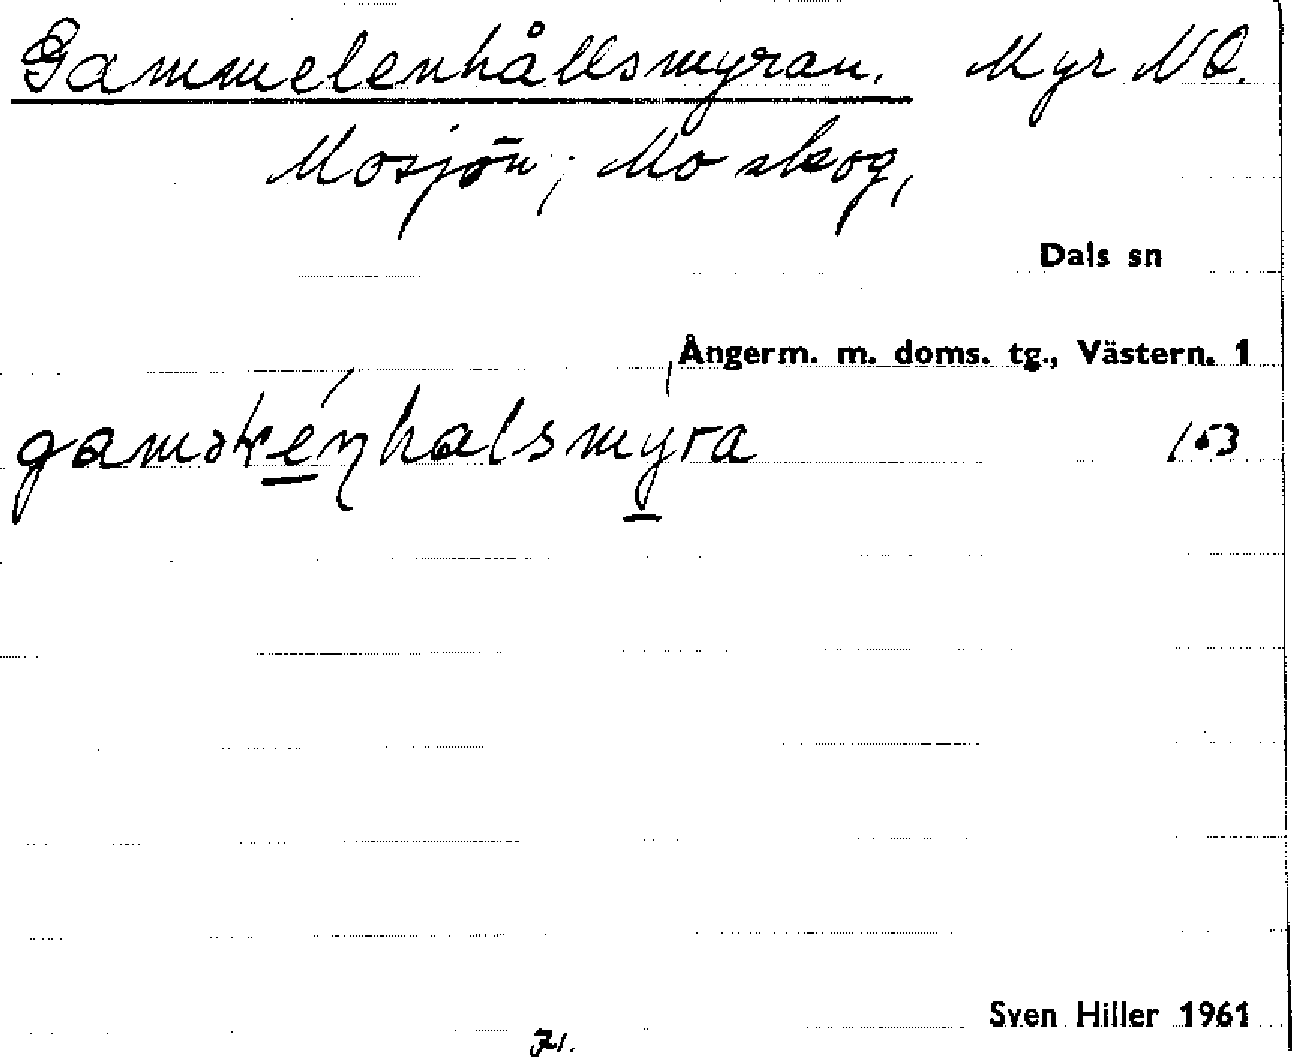 Gammelenhållsmyran. Myr NO.
Mosjön; Mo skog,
Dals sn
Ångerm. m. doms. tg., Västern. 1
153
Sven Hiller 1961